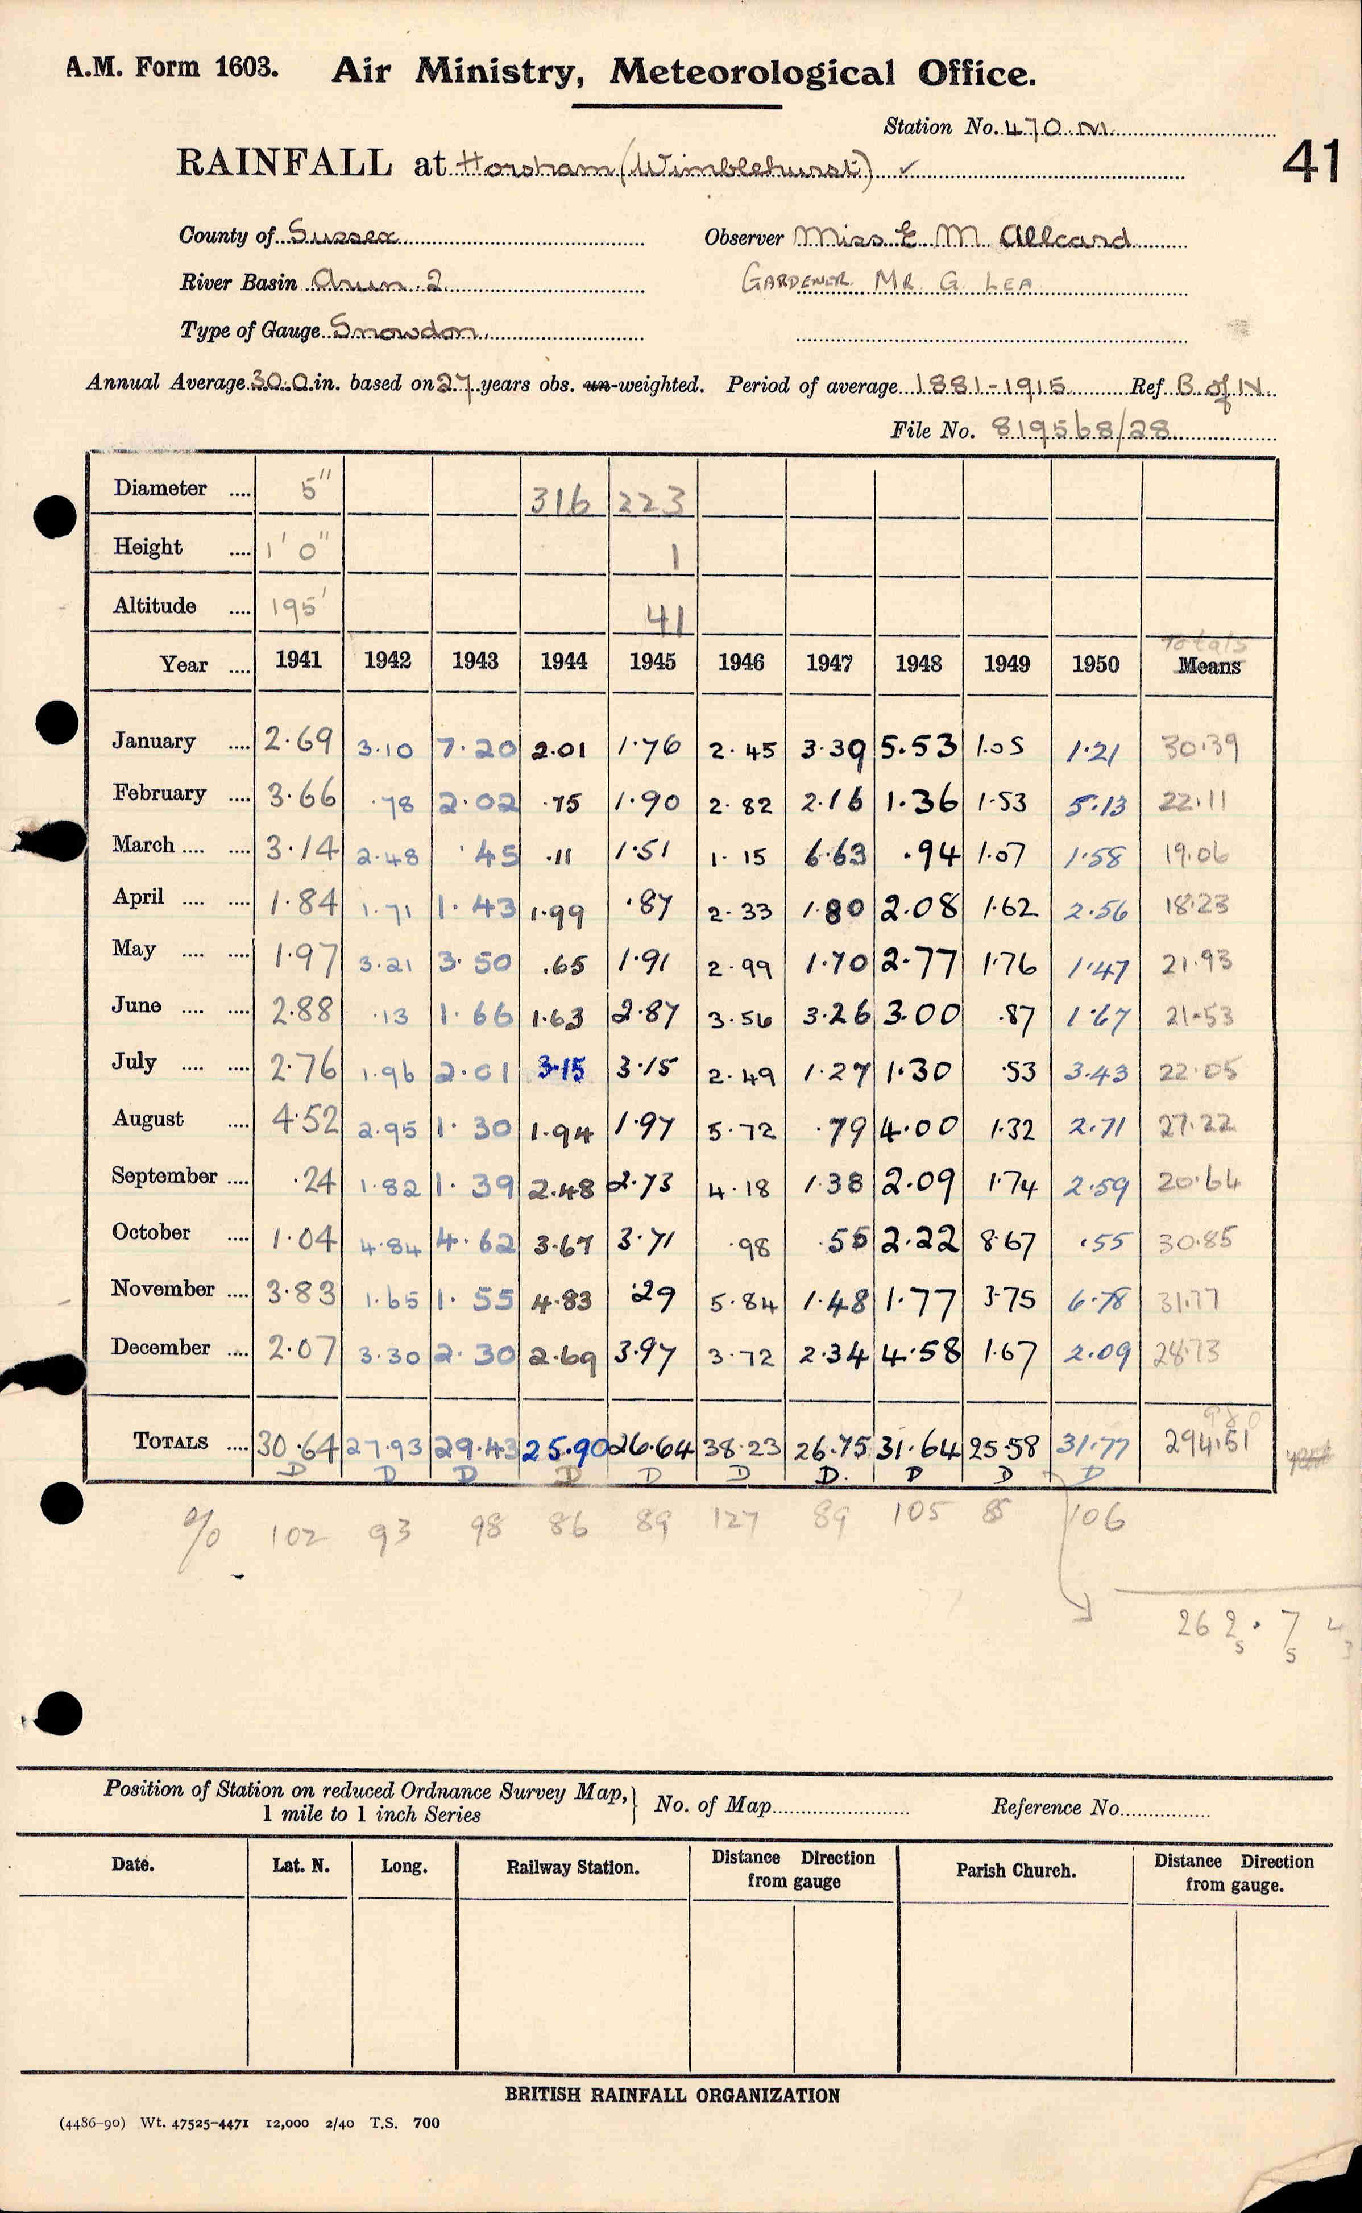 A.M. Form 1603. Air Ministry, Meteorological Office.
Station No. 470.M.
41
RAINFALL at Horsham (Wimblehurst) ✓
County of Sussex Observer Miss E M Allcard
River Basin Arun 2 GARDENER MR G LEA
Type of Gauge Snowdon
Annual Average 30.0 in. based on 27 years obs. un-weighted. Period of average 1881-1915 Ref B of N
File No. 819568/28
Diameter .... 5" 316 223
Height .... 1' 0" 1
Altitude .... 195' 41
Totals
Year .... 1941 1942 1943 1944 1945 1946 1947 1948 1949 1950 Means
January .... 2.69 3.10 7.20 2.01 1.76 2.45 3.39 5.53 1.05 1.21 30.39
February .... 3.66 .78 2.02 .75 1.90 2.82 2.16 1.36 1.53 5.13 22.11
March .... .... 3.14 2.48 .45 .11 1.51 1.15 6.63 .94 1.07 1.58 19.06
April .... .... 1.84 1.71 1.43 1.99 .87 2.33 1.80 2.08 1.62 2.56 18.23
May .... .... 1.97 3.21 3.50 .65 1.91 2.99 1.70 2.77 1.76 1.47 21.93
June .... .... 2.88 .13 1.66 1.63 2.87 3.56 3.26 3.00 .87 1.67 21.53
July .... .... 2.76 1.96 2.01 3.15 3.15 2.49 1.27 1.30 .53 3.43 22.05
August .... 4.52 2.95 1.30 1.94 1.97 5.72 .79 4.00 1.32 2.71 27.22
September .... .24 1.82 1.39 2.48 2.73 4.18 1.38 2.09 1.74 2.59 20.64
October .... 1.04 4.84 4.62 3.67 3.71 .98 .55 2.22 8.67 .55 30.85
November .... 3.83 1.65 1.55 4.83 .29 5.84 1.48 1.77 3.75 6.78 31.77
December .... 2.07 3.30 2.30 2.69 3.97 3.72 2.34 4.58 1.67 2.09 28.73
TOTALS .... 30.64 27.93 29.43 25.90 26.64 38.23 26.75 31.64 25.58 31.77 294.51
D D D D D D D. D D D
% 102 93 98 86 89 127 89 105 85 106
262.74
Position of Station on reduced Ordnance Survey Map,
1 mile to 1 inch Series
No. of Map.................... Reference No................
Date. Lat. N. Long. Railway Station. Distance Direction from gauge Parish Church. Distance Direction from gauge.
BRITISH RAINFALL ORGANIZATION
(4486-90) Wt. 47525-4471 12,000 2/40 T.S. 700